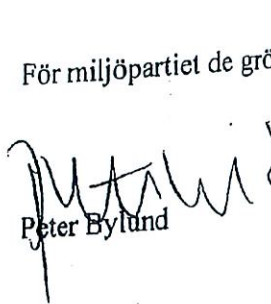 För miljöpartiet de grö
Peter Bylund